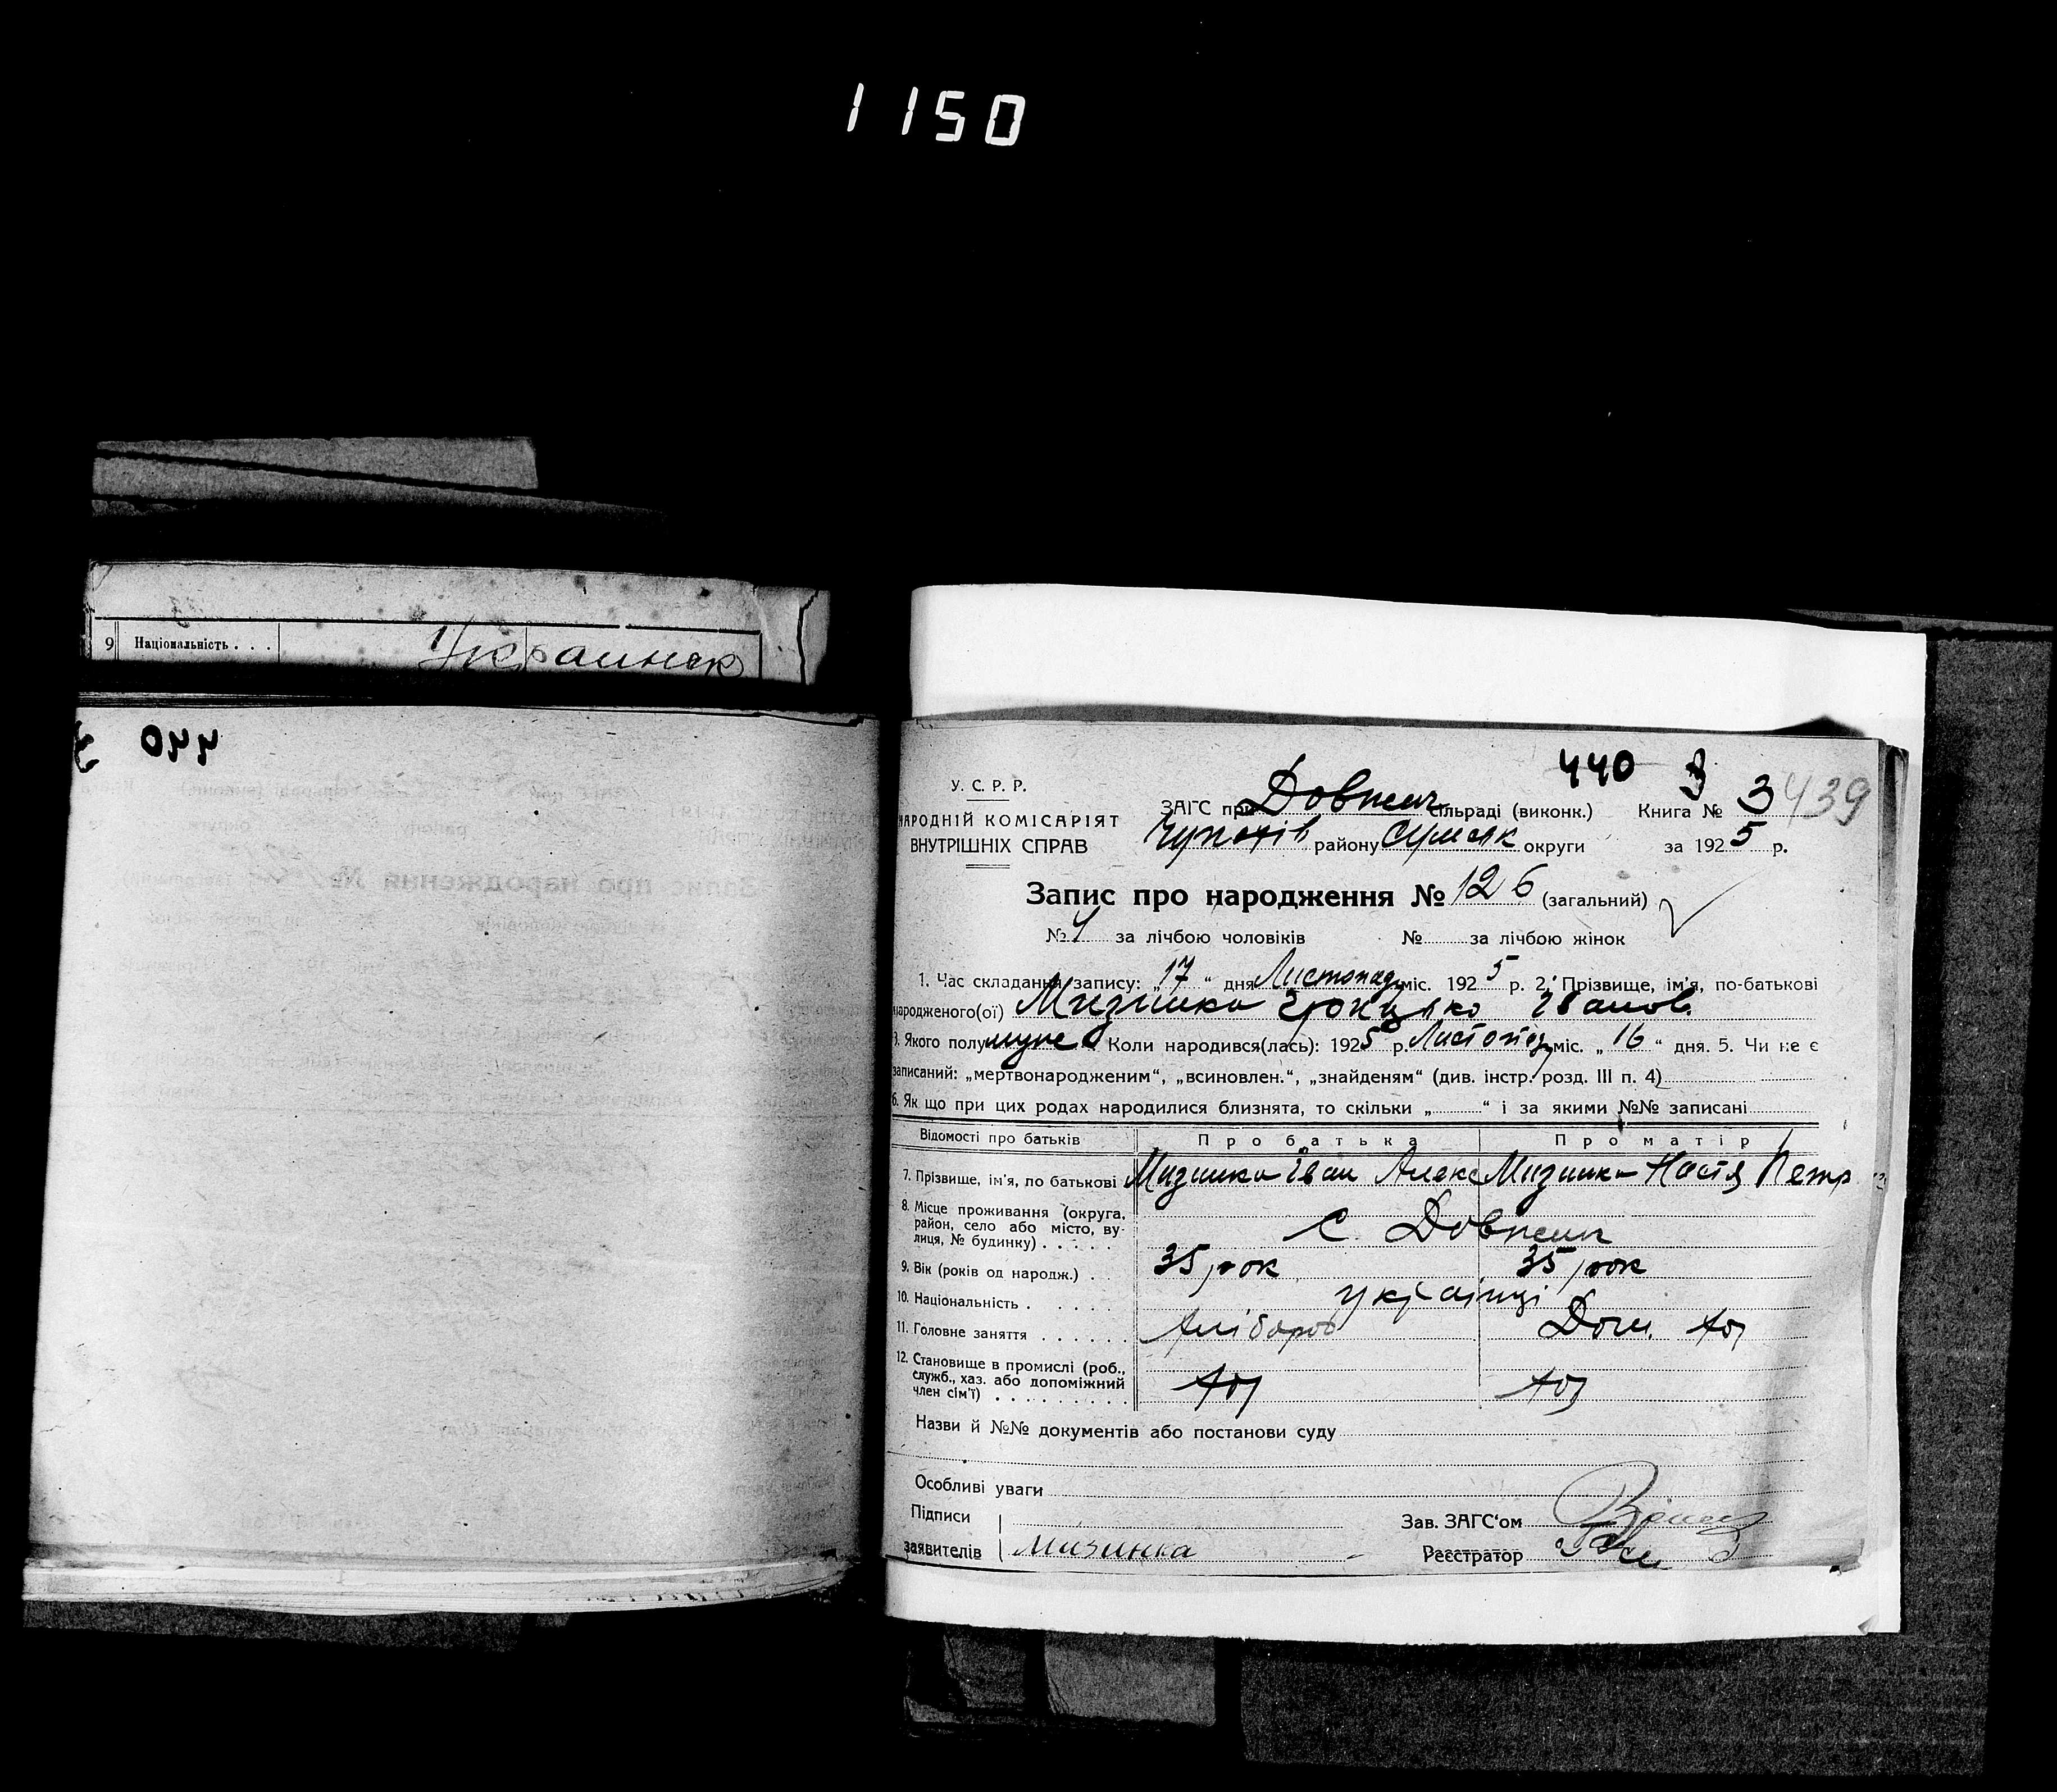 1150
9 Національність . . . Украинск
440 3
У. С. Р. Р.
НАРОДНІЙ КОМІСАРІЯТ
ВНУТРІШНІХ СПРАВ
ЗАГС при Довжич сільраді (виконк.) Книга № 3 439
району Сумськ округи за 1925 р.
Запис про народження № 126 (загальний)
№ за лічбою чоловіків № за лічбою жінок
1. Час складання запису: „17“ дня Листопад міс. 1925 р. 2. Прізвище, ім'я, по-батькові
народженого(ої) Мизинка Іванов.
3. Якого полу муже Коли народився(лась): 1925 р. Листопад міс. „16“ дня. 5. Чи не є
записаний: „мертвонародженим“, „всиновлен.“, „знайденям“ (див. інстр. розд. III п. 4)
6. Як що при цих родах народилися близнята, то скільки „ “ і за якими №№ записані
Відомості про батьків Про батька Про матір
7. Прізвище, ім'я, по батькові Мизинка Іван Алекс Мизинка Настя Петр
8. Місце проживання (округа, район, село або місто, вулиця, № будинку) . . . . . с. Довжич
9. Вік (років од народж.) . . 35 рок 35 рок
10. Національність . . . . . українці
11. Головне заняття . . . . . . Хлібороб Дом.
12. Становище в промислі (роб.,
служб., хаз. або допоміжний
член сім'ї) . . . . . . . . .
Назви й №№ документів або постанови суду
Особливі уваги
Підписи
Зав. ЗАГС'ом
заявителів Мизинка
Реєстратор